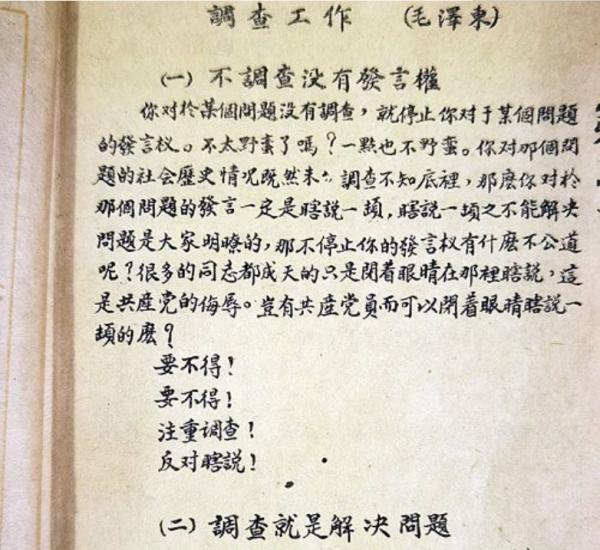 調查工作 （毛澤東）
（一）不調查没有發言權
你对於某個問題没有調查，就停止你对于某個問題
的發言权。不太野蛮了嗎？一點也不野蛮。你对那個問
題的社会歷史情况既然未 調查不知底裡，那麽你对於
那個問題的發言一定是瞎説一頓，瞎説一頓之不能解决
問題是大家明瞭的，那不停止你的發言权有什麽不公道
呢？很多的同志都成天的只是閉着眼睛在那裡瞎説，這
是共産党的侮辱。豈有共産党員而可以閉着眼睛瞎説一
頓的麽？
要不得！
要不得！
注重调查！
反对瞎説！
（二）調查就是解决問題